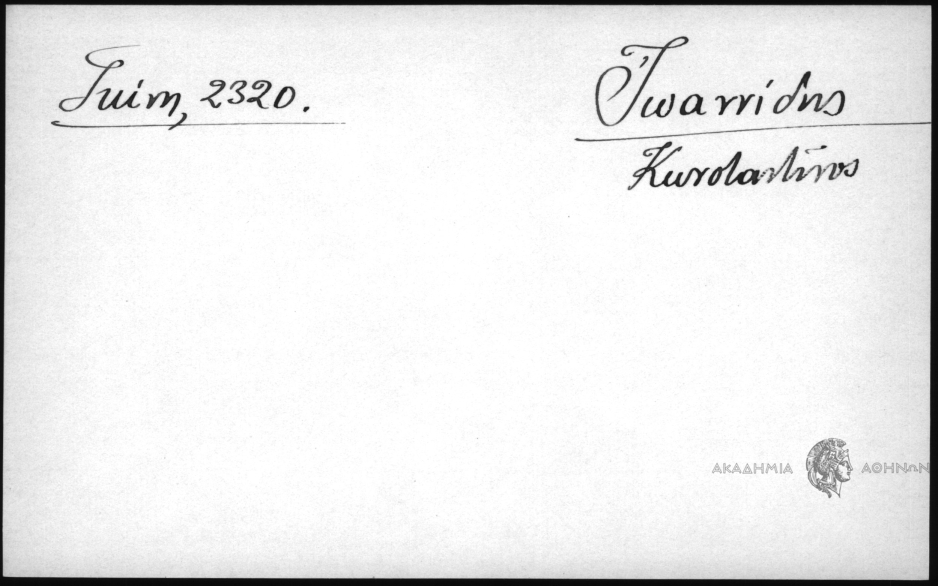 Γκίνη, 2320.
Ἰωαννίδης
Κωνσταντῖνος
ΑΚΑΔΗΜΙΑ ΑΘΗΝΩΝ